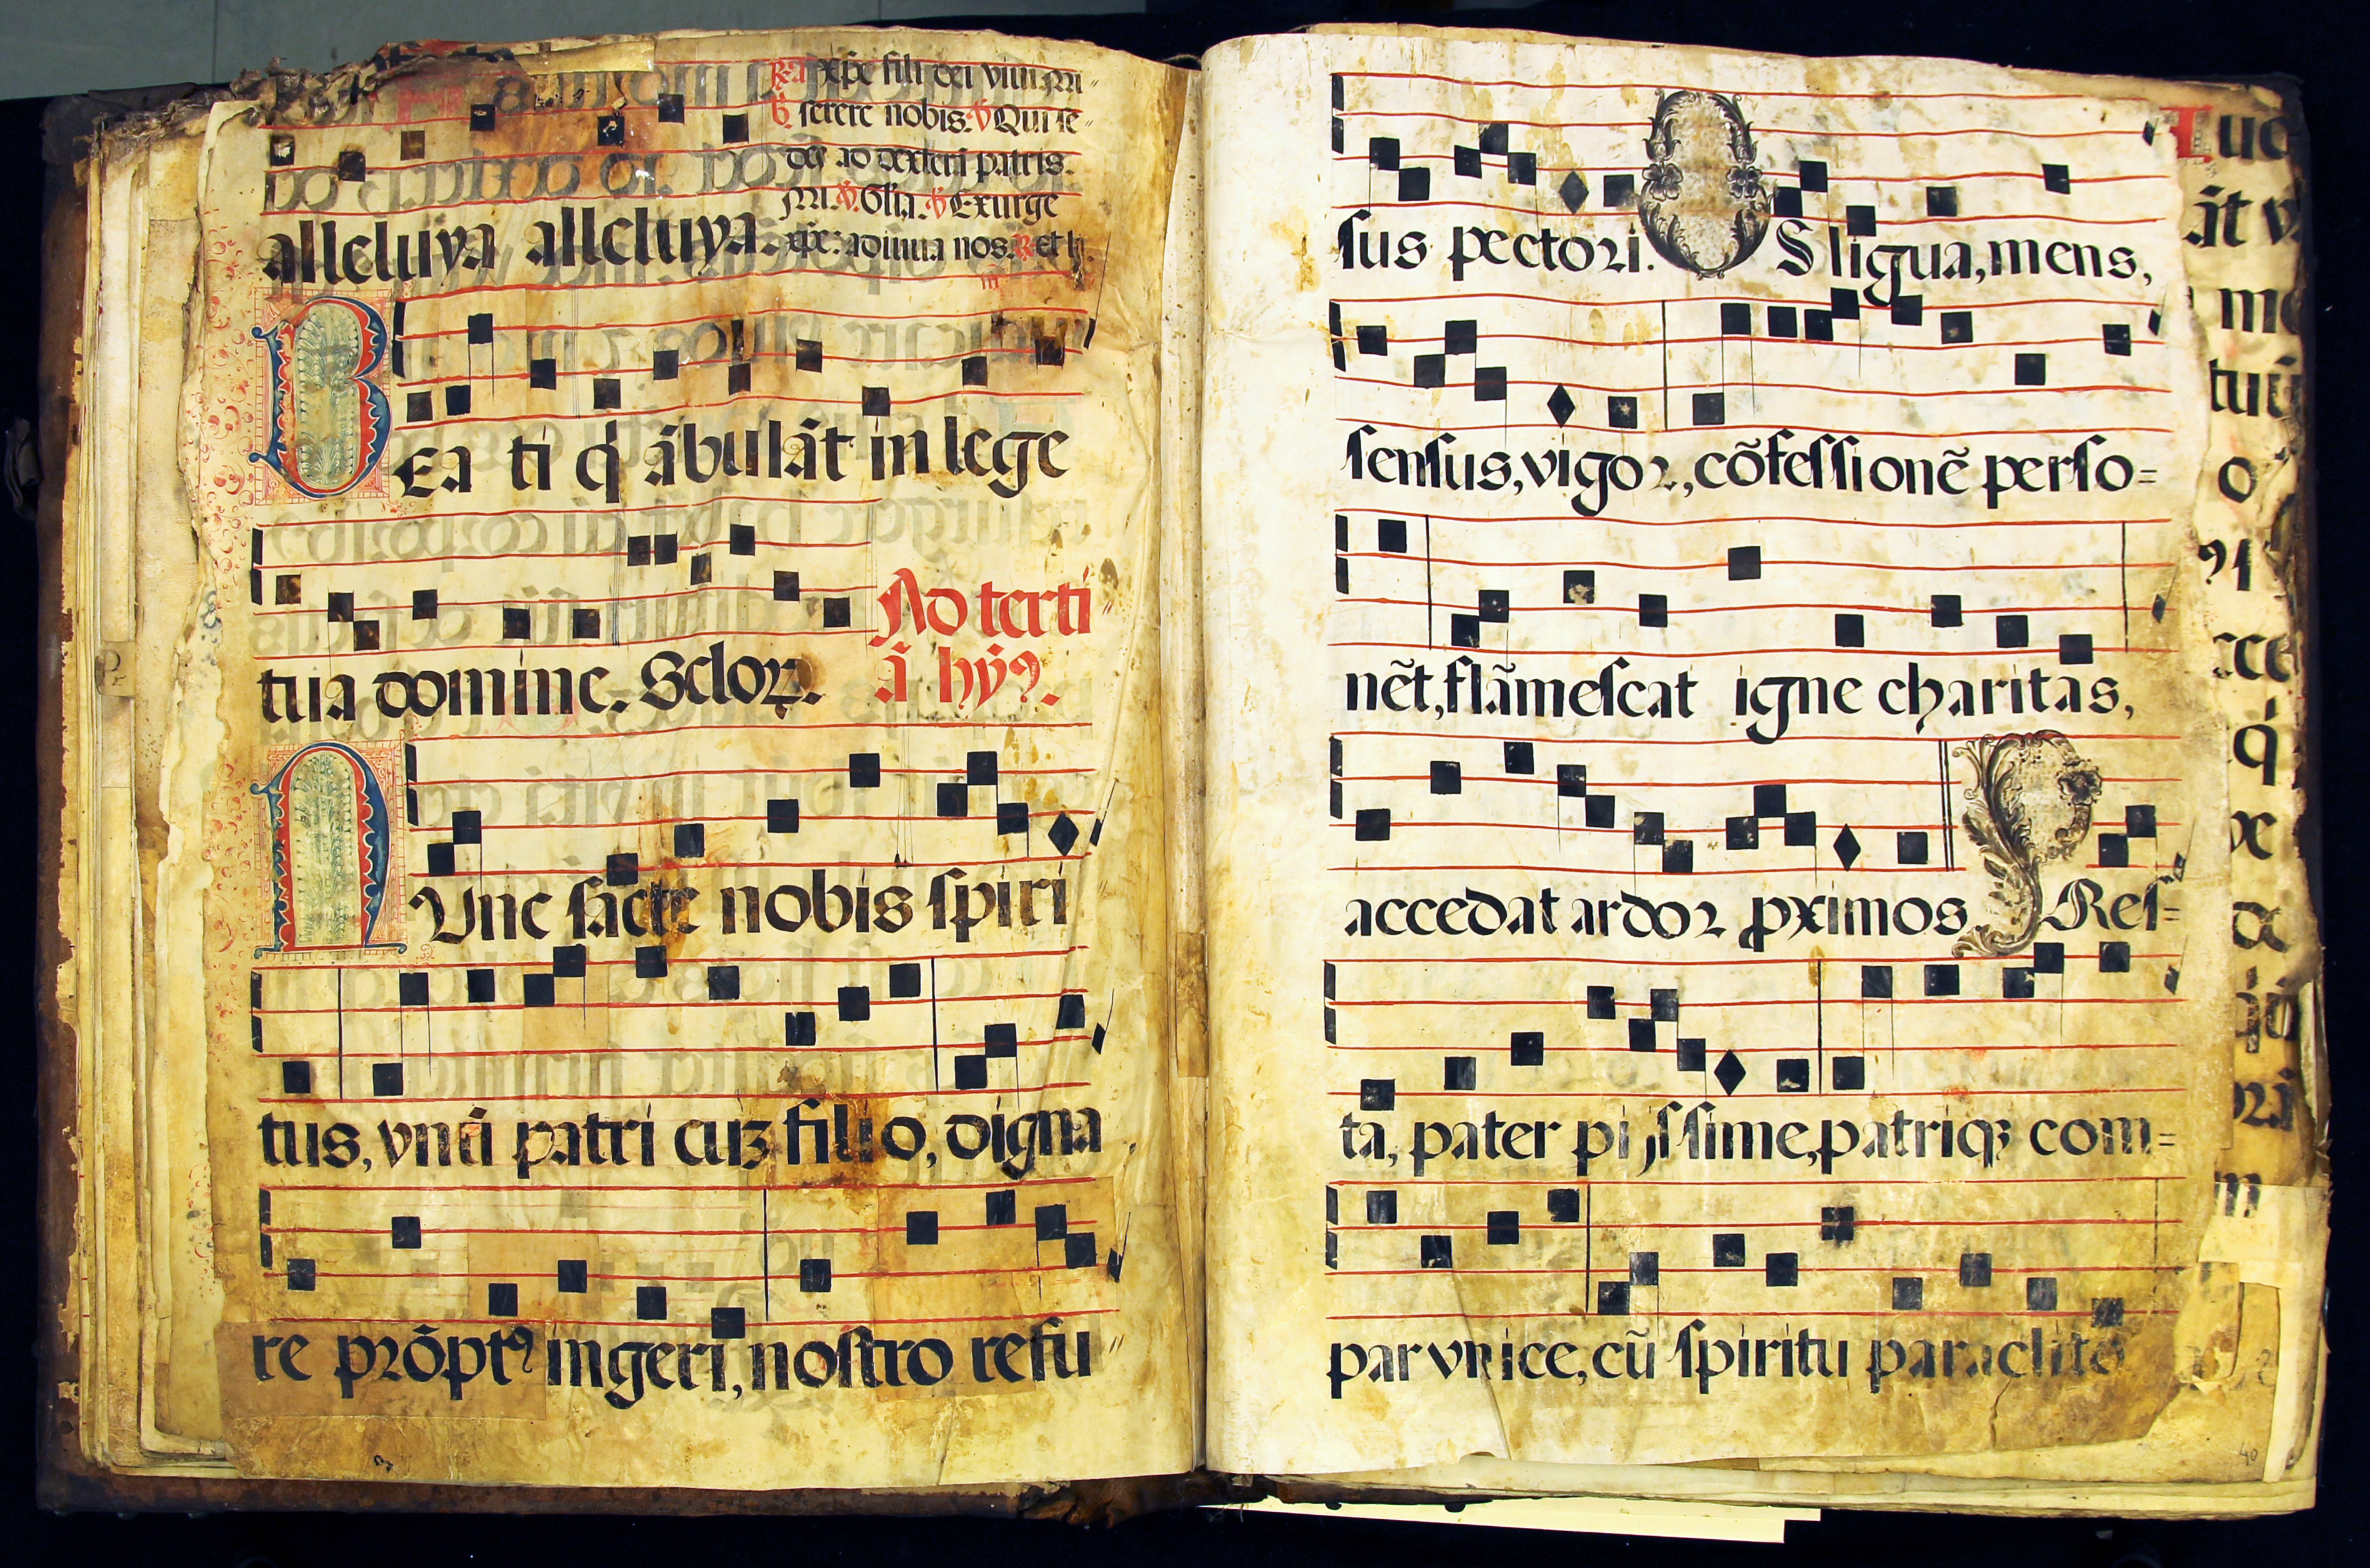 R. I xp̃e fili dei viui Mi
serere nobis. V. Qui se
des ad dexterã patris.
Mi. V. Glia. V. Exurge
alleluya alleluya. xp̃e: adiuua nos. R. et
BEa ti q̇ ãbulãt in lege
tua domine. Sclor.
Ad terti
ã hỹ9.
NVnc sãcte nobis spiri
tus, vnũ patri cuʒ filio, digna
re prõptꝰ ingeri, nostro refu
sus pectori. OS ligua, mens,
sensus, vigor, cõfessionẽ perso=
nẽt, flãmescat igne charitas,
accedat ardor ꝓximos PRes=
ta, pater pijssime, patriqʒ com=
par vnice, cũ spiritu paraclito
40